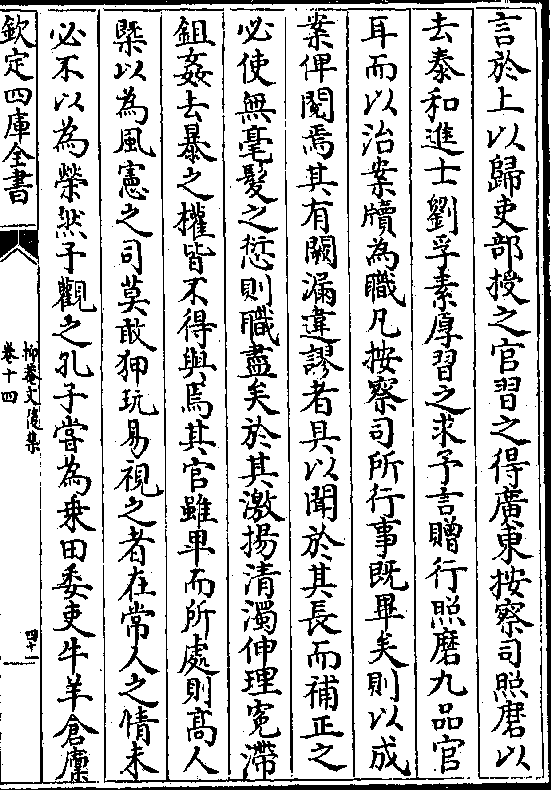 言於上以歸吏部授之官習之得廣東按察司照磨以
去泰和進士劉孚素厚習之求予言贈行照磨九品官
耳而以治案牘為職凡按察司所行事既畢矣則以成
案俾閱焉其有闕漏違謬者具以聞於其長而補正之
必使無毫髮之愆則職盡矣於其激揚清濁伸理寃滯
鉏姦去暴之權皆不得與焉其官雖卑而所處則高人
槩以為風憲之司莫敢狎玩易視之者在常人之情未
必不以為榮然予觀之孔子嘗為乗田委吏牛羊倉廪
欽定四庫全書
抑菴文後集
卷十四
四十一